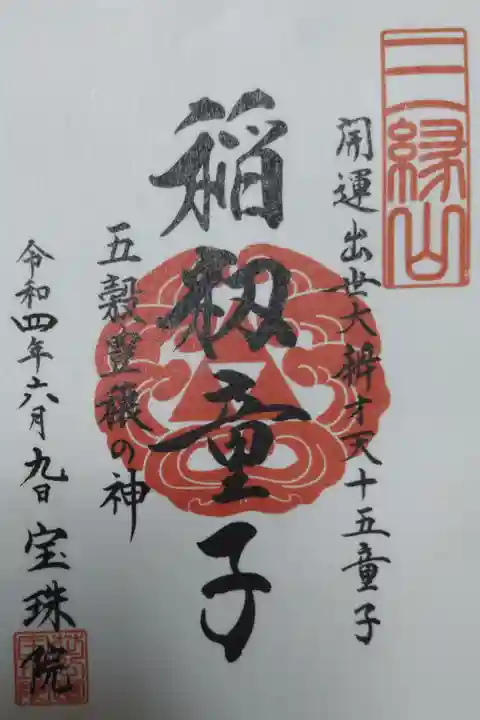 三縁山
開運出世大辨才天十五童子
稲籾童子
五穀豊穣の神
令和四年六月九日
宝珠院